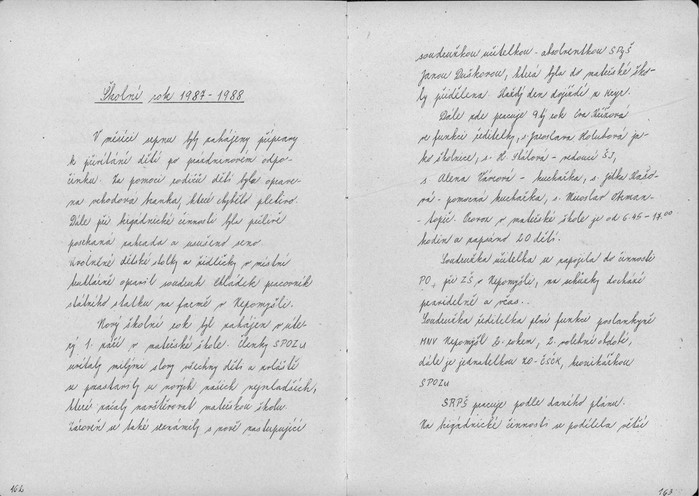 Školní rok 1987-1988
V měsíci srpnu byly zahájeny přípravy
k přivítání dětí po prázdninovém odpo-
činku. Za pomoci rodičů dětí byla oprave-
na vchodová branka, které chybělo pletivo.
Dále při brigádnické činnosti byla pilně
posekaná zahrada a usušeno seno.
dětské stolky a židličky v místní
truhlárně opravil soudruh Chládek pracovník
státního statku na farmě v Nepomyšli.
Nový školní rok byl zahájen v úte-
rý 1. září v mateřské škole. Členky SPOZu
uvítaly milými slovy všechny děti a zvláště
se pozastavily u nových našich nejmladších,
které začaly navštěvovat mateřskou školu.
Zároveň se také seznámily s nově nastupující
162
soudružkou učitelkou - absolventkou SPgŠ
Janou Duškovou, která byla do mateřské ško-
ly přidělena. Každý den dojíždí z Kryr.
Dále zde pracuje 9tý rok Eva Křížová
ve funkci ředitelky, s. Jaroslava Holubová ja-
ko školnice, s. H. Stálová - vedoucí ŠJ,
s. Alena Vávrová - kuchařka, s. Jitka
- pomocná kuchařka, s. Miroslav Otman-
- topič. Provoz v mateřské škole je od 6.45-17.00
hodin a zapsáno 20 dětí.
Soudružka učitelka se zapojila do činnosti
PO, při ZŠ v Nepomyšli, na schůzky dochází
pravidelně a včas.
Soudružka ředitelka plní funkci poslankyně
MNV Nepomyšl 2. rokem, 2. volební období,
dále je jednatelkou ZO-ČSČK, kronikářkou
SPOZu
SRPŠ pracuje podle daného plánu.
Na brigádnické činnosti se podílela větší
163